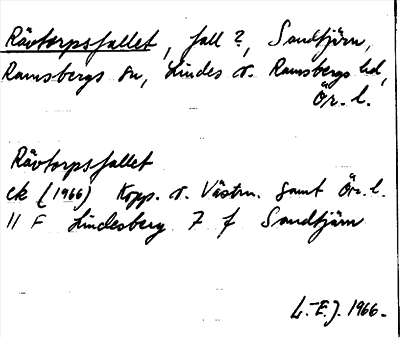 Rävtorpsfallet, fall ?, Sandtjärn,
Ramsbergs sn, Lindes o. Ramsbergs hd,
Ör. l.
Rävtorpsfallet
ek (1966) Kopp. o. Västm. samt Ör. l.
11 F Lindesberg 7 f Sandtjärn
L.-E.J. 1966.